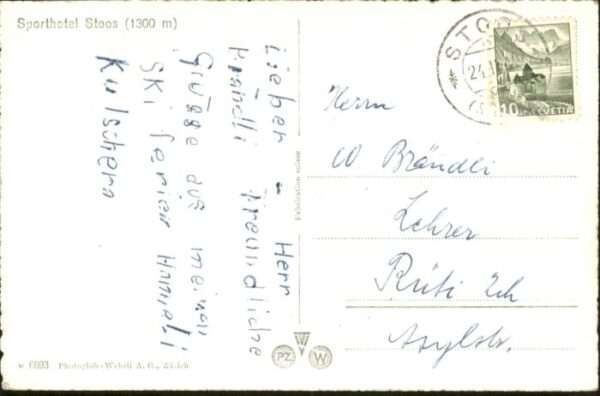 Sporthotel Stoos (1300 m)
Lieber - Herr
Brändli Freundliche
Grüsse aus meinen
Ski ferien
STOOS
24.
10 HELVETIA
Herrn
W Brändli
Lehrer
Rüti Zch
Asylstr.
Fabrication suisse
PZ W
w 6693 Photoglob-Wehrli A. G., Zürich